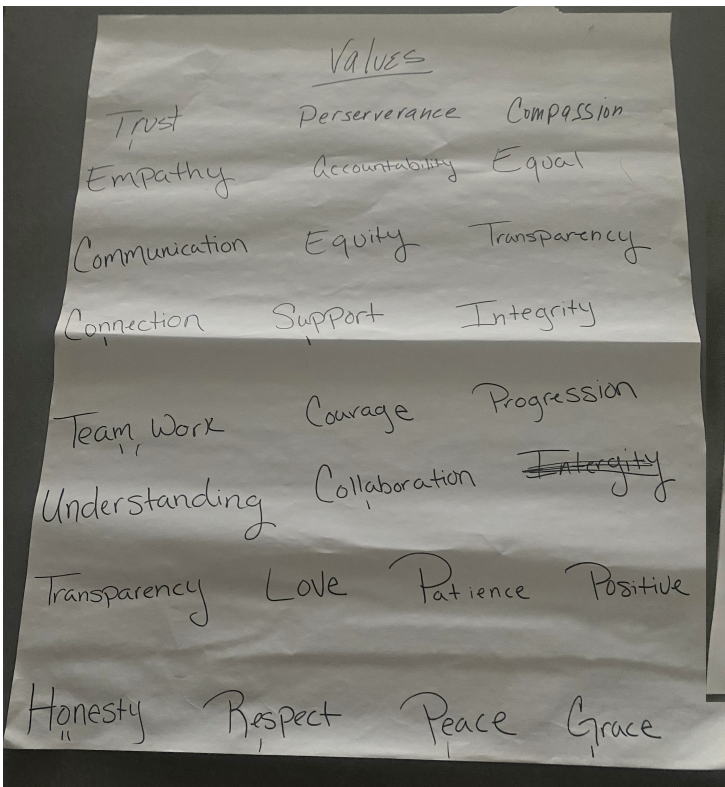 Values
Trust Perserverance Compassion
Empathy Accountability Equal
Communication Equity Transparency
Connection Support Integrity
Team Work Courage Progression
Understanding Collaboration Intergity
Transparency Love Patience Positive
Honesty Respect Peace Grace